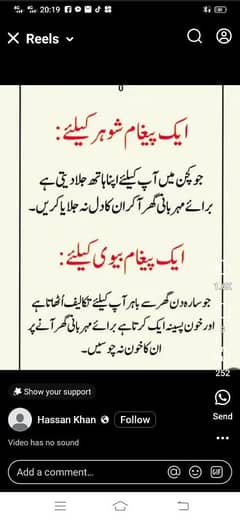 20:19
Reels
ایک پیغام شوہر کیلئے:
جو کچن میں آپ کیلئے اپنا ہاتھ جلا دیتی ہے
برائے مہربانی گھر آ کر ان کا دل نہ جلایا کریں۔
ایک پیغام بیوی کیلئے:
جو سارہ دن گھر سے باہر آپ کیلئے تکالیف اُٹھاتا ہے
اور خون پسینہ ایک کرتا ہے برائے مہربانی گھر آنے پر
ان کا خون نہ چوسیں۔
252
Show your support
Send
Hassan Khan
Follow
Video has no sound
Add a comment...
GIF